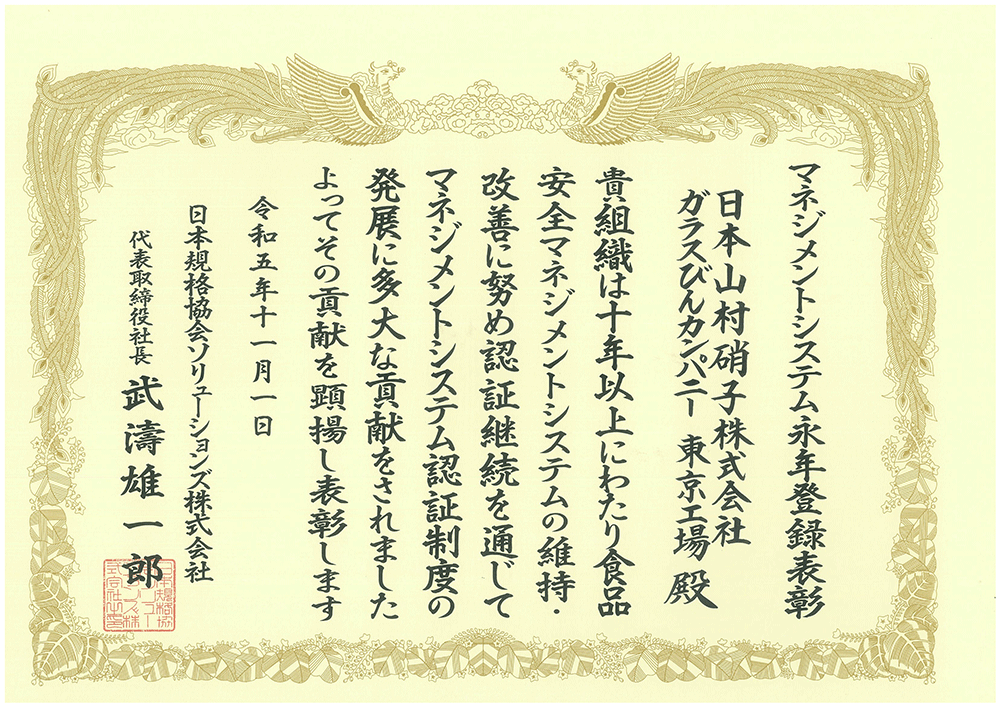 マネジメントシステム永年登録表彰
日本山村硝子株式会社
ガラスびんカンパニー 東京工場 殿
貴組織は十年以上にわたり食品
安全マネジメントシステムの維持・
改善に努め認証継続を通じて
マネジメントシステム認証制度の
発展に多大な貢献をされました
よってその貢献を顕揚し表彰します
令和五年十一月一日
日本規格協会ソリューションズ株式会社
代表取締役社長 武濤雄一郎